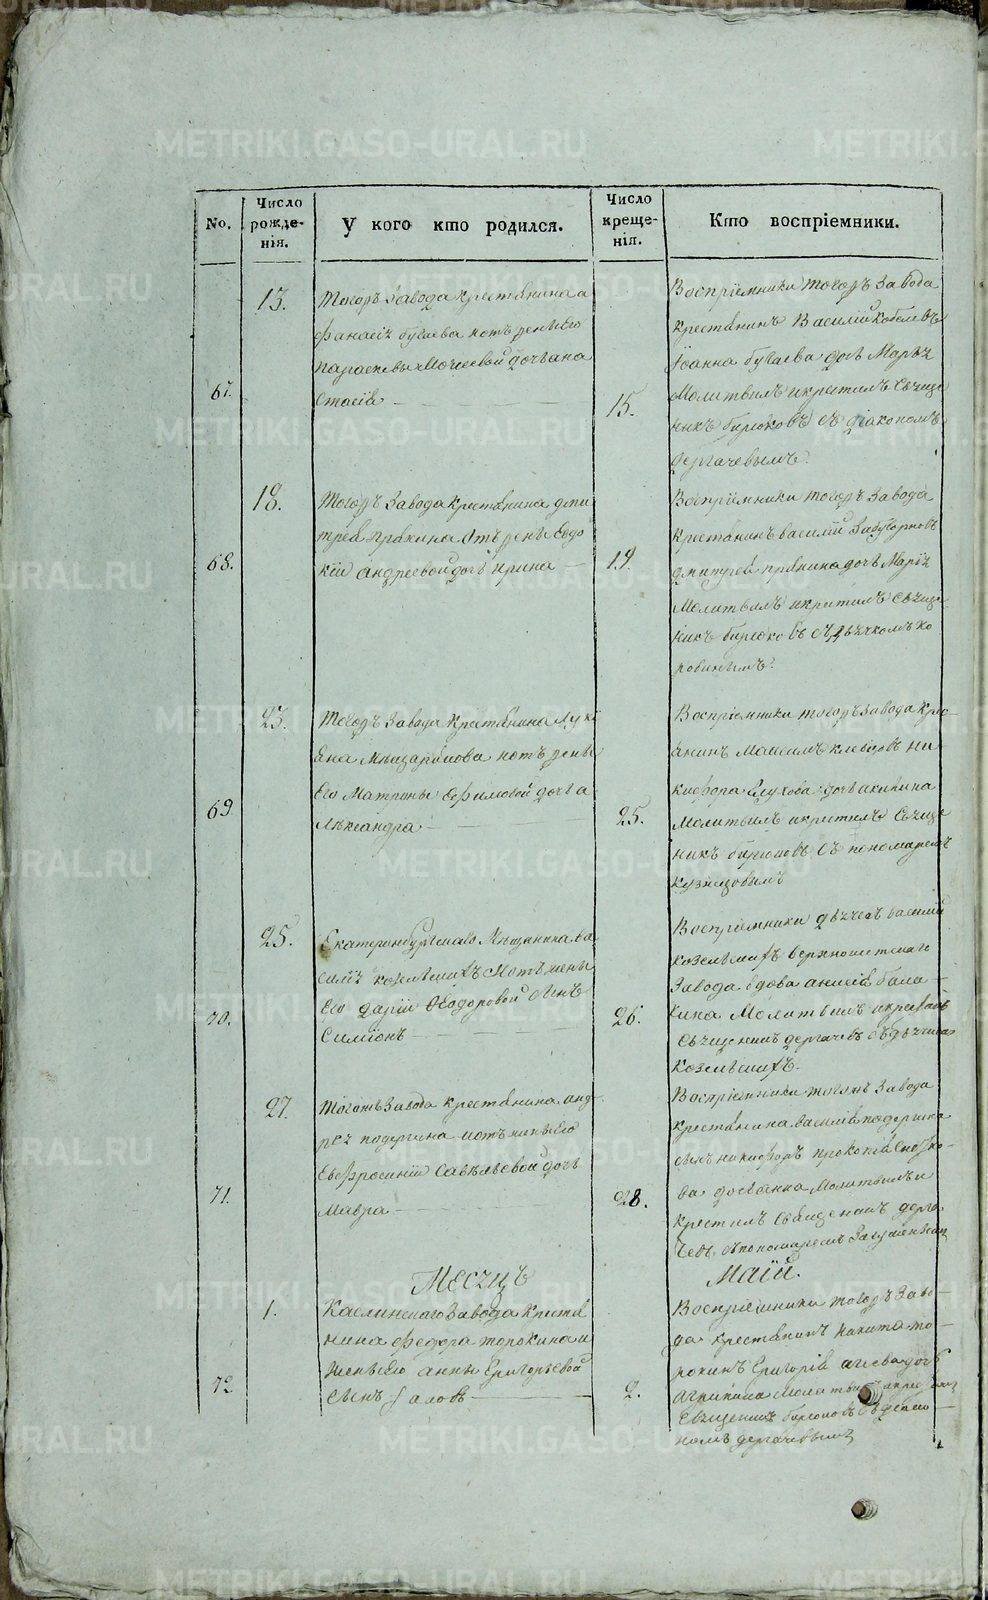 METRIKI.GASO-URAL.RU
No.
Число рожде-нія.
У кого кто родился.
Число креще-нія.
Кто воспріемники.
67.
13.
Тогожъ Завода крестьянина а
фанасія бугаева
Параскевы Мочеевой дочь ана
стасія
15.
Воспріемники тогожъ Завода
крестьянинъ Василій Кобелевъ
Іоанна бугаева дочь Марія
Молитвилъ икрестилъ Священ
никъ бирюковъ съ діакономъ
дергачевымъ.
68.
18.
Тогожъ Завода крестьянина дми
трея пракина Отъ жены Евдо
кіи андреевой дочь ирина
19.
Воспріемники тогожъ Завода
крестьянинъ василій
дмитрея пракина дочь Марія
Молитвилъ икрестилъ Священ
никъ бирюковъ съ дьячкомъ ко
ровинымъ.
69
23.
Тогожъ Завода крестьянина Луки
яна иотъ жены
Его Матроны Ефимовой дочь а
лександра
25.
Воспріемники тогожъ Завода кре-
янинъ Максимъ клевцовъ ни
кифора Глухова дочь акилина
Молитвилъ икрестилъ Священ
никъ бирюковъ съ пономаремъ
кузнецовымъ
70.
25.
Екатеринбургскаго Мещанина ва
силія козельскихъ иотъ жены
Его дарьи Феодоровой сынъ
Симіонъ
26.
Воспріемники дьячекъ василій
козельскихъ верхнеисетскаго
Завода вдова анисія бала-
кина Молитвилъ икрестилъ
Священникъ дергачевъ съ дьячкомъ
козельскихъ.
71.
27.
Тогожъ Завода крестьянина анд-
рея подергина иотъ жены Его
Евфросиніи Савельевой дочь
Мавра
28.
Воспріемники тогожъ Завода
крестьянина василія подергина
сынъ никифоръ прокопія
ва дочь анна Молитвилъ и
крестилъ Священникъ дерга-
чевъ съ пономаремъ
Месяцъ Маій.
72
1.
Каслинскаго Завода крестья
нина федора торокина и
жены Его анны Григорьевой
сынъ Іаковъ
2.
Воспріемники тогожъ Заво-
да крестьянинъ никита то-
рокинъ Григорія агеева дочь
Агрипина Молитвилъ икрестилъ
Священникъ бирюковъ съ діако-
номъ дергачевымъ